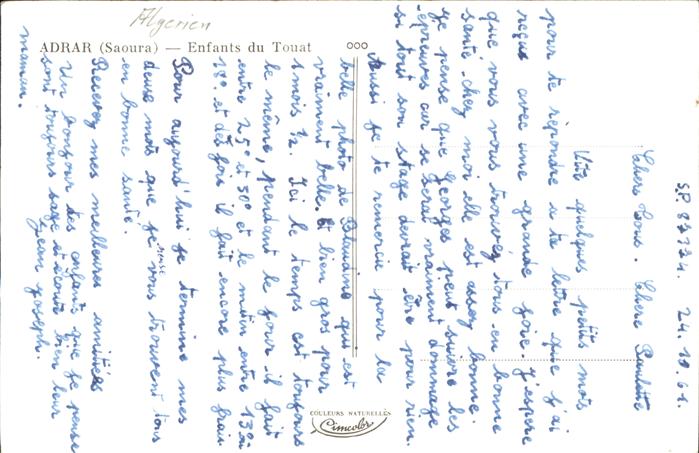 Algerien
ADRAR (Saoura) — Enfants du Touat
S.P 87734. 24.10.61.
Chers Tous. Chere Paulette
Vite quelques petits mots
pour te répondre a ta lettre que j'ai
reçus avec une grande joie. J'espere
que vous vous trouvez tous en bonne
santé chez moi elle est assez bonne.
Je pense que Georges peut suivre les
epreuves car se serait vraiment dommage
si tout son stage devrait être pour rien.
Aussi je te remercie pour la
belle photo de Blandine qui est
vraiment belle. Et bien gros pour
1 mois 1/2. Ici le temps est toujours
le même, pendant le jour il fait
entre 25° et 30° et le matin entre 13° à
18° et des fois il fait encore plus frais.
Pour aujourd'hui je termine mes
deux mots que je vous trouvent tous
en bonne santé.
Recevez mes meilleures amitiés
Jean joseph.
Un bonjour des enfants que je pense
sont toujours sage et écoute bien leur
maman.
COULEURS NATURELLES
Cimcolor